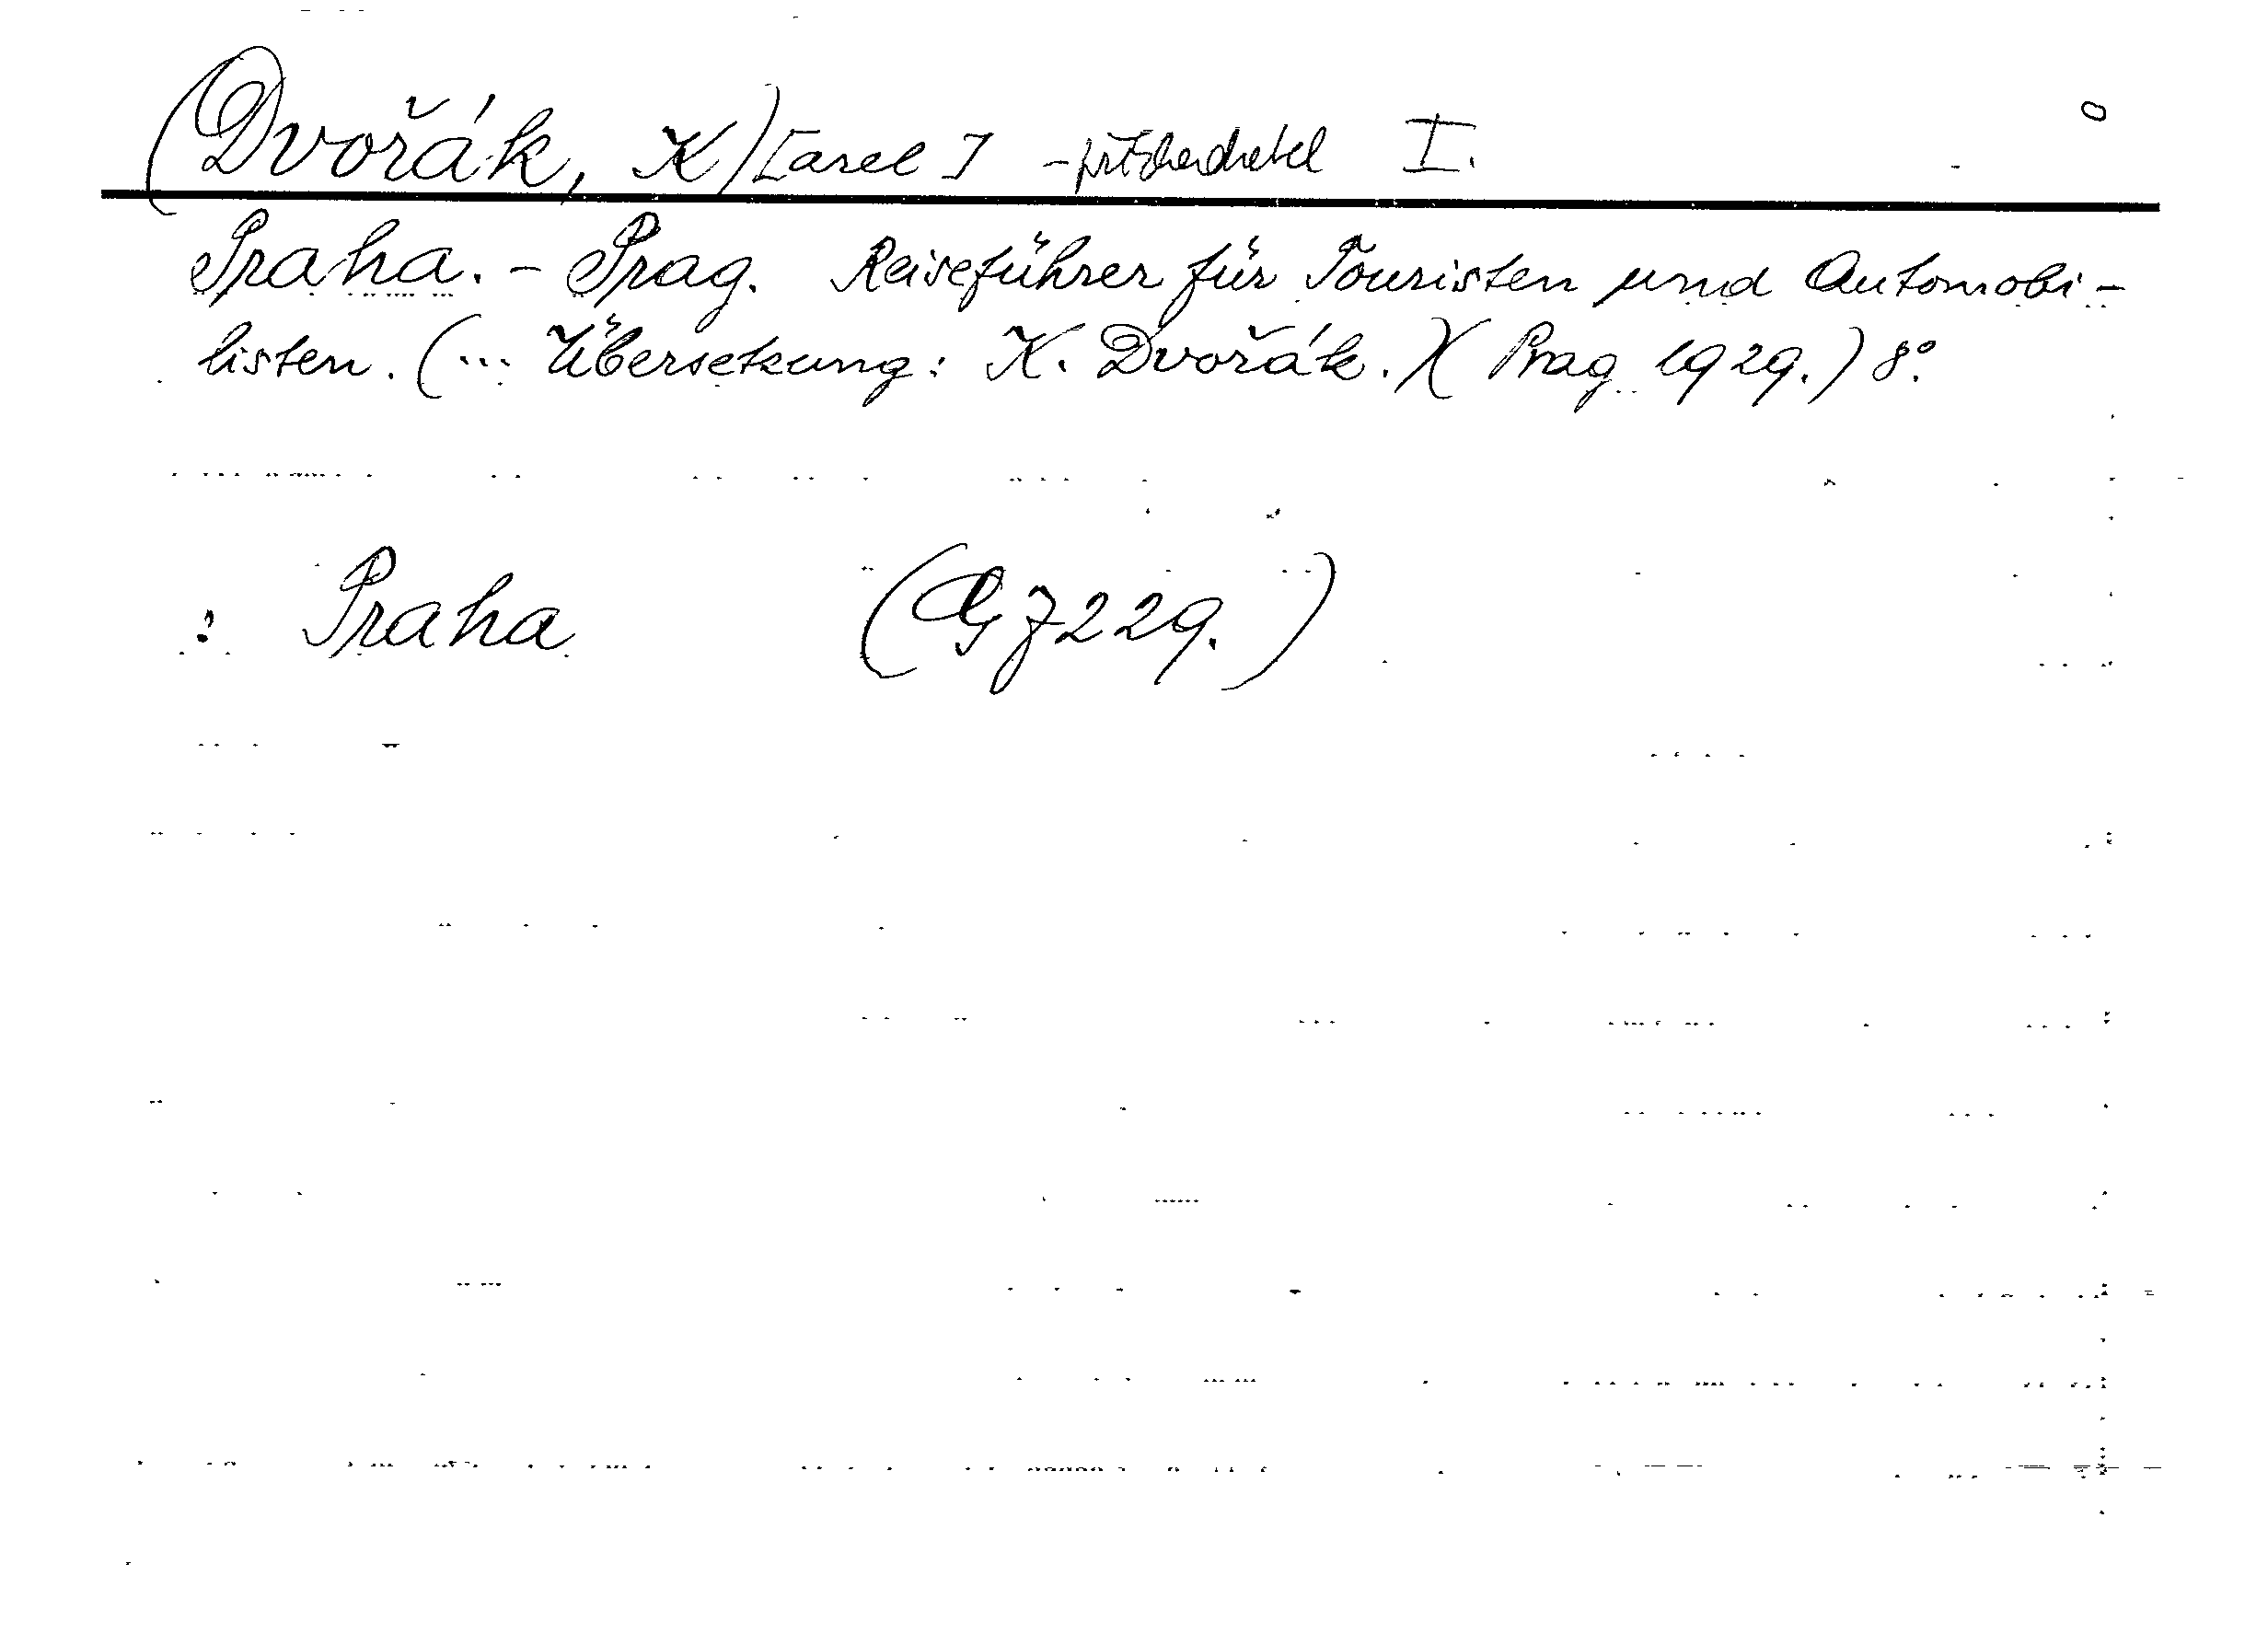 (Dvořák, K)[arel] I.
Praha. - Prag. Reiseführer für Touristen und Automobi-
listen. (... Übersetzung: K. Dvořák.)(Prag 1929.) 8°.
: Praha (G J 229.)